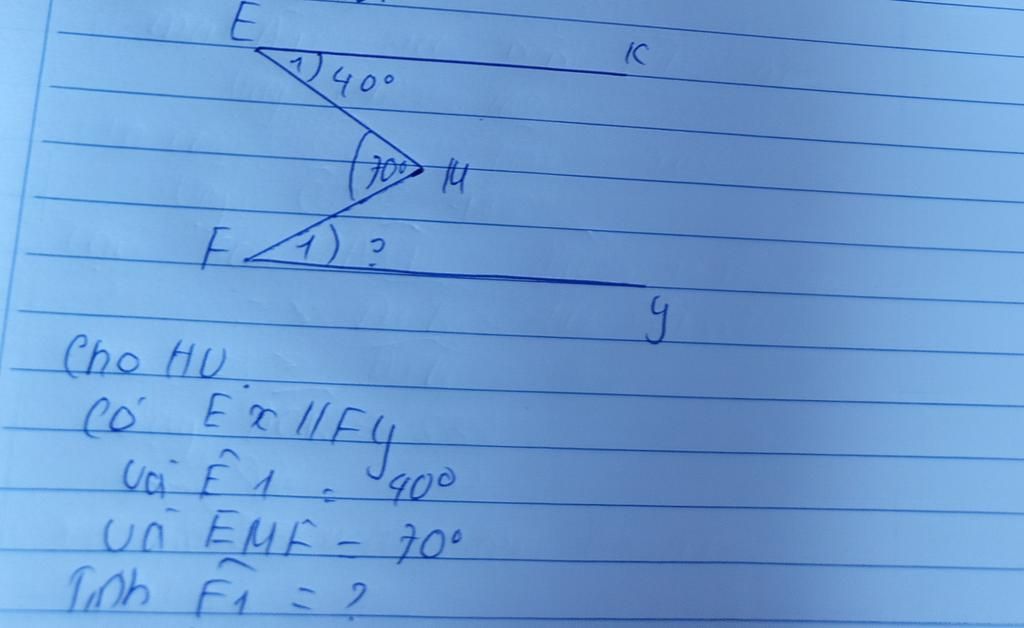 E
K
1) 40°
70° M
F 1) ?
y
Cho HV
Có Ex // Fy
và Ê1 = 40°
và EMF = 70°
Tính F̂1 = ?